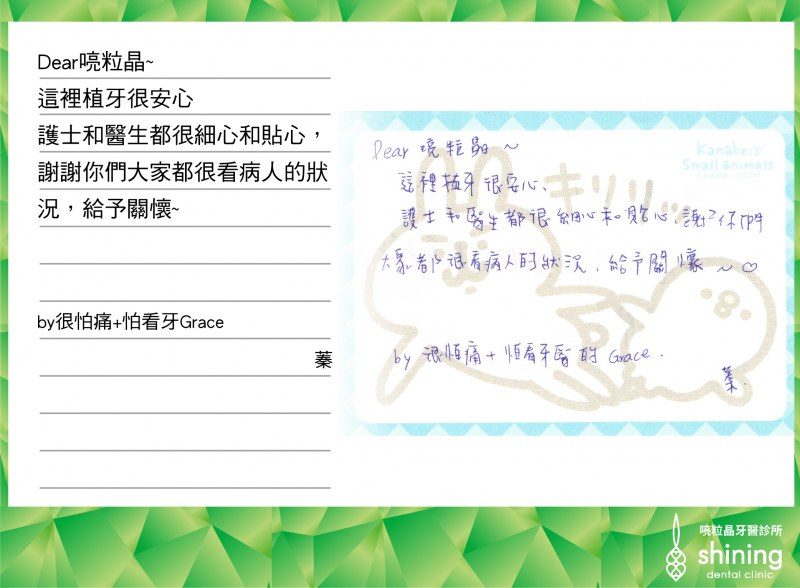 Dear喨粒晶~
這裡植牙很安心
護士和醫生都很細心和貼心，
謝謝你們大家都很看病人的狀
況，給予關懷~
by很怕痛+怕看牙Grace
蓁
Kanahei's
Small animals
キリリッ
Dear 喨粒晶～
這裡植牙很安心、
護士和醫生都很細心和貼心、謝²你們
大家都很看病人的狀況、給予關懷～♡
by 很怕痛+怕看牙醫的 Grace.
蓁.
喨粒晶牙醫診所
shining
dental clinic